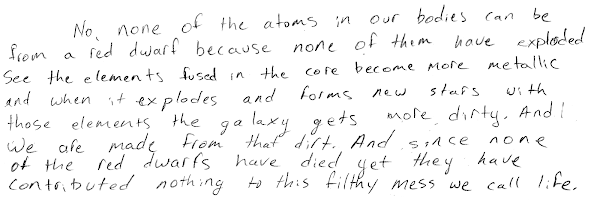 No, none of the atoms in our bodies can be
from a red dwarf because none of them have exploded
See the elements fused in the core become more metallic
and when it explodes and forms new stars with
those elements the galaxy gets more dirty. And
We are made from that dirt. And since none
of the red dwarfs have died yet they have
contributed nothing to this filthy mess we call life.